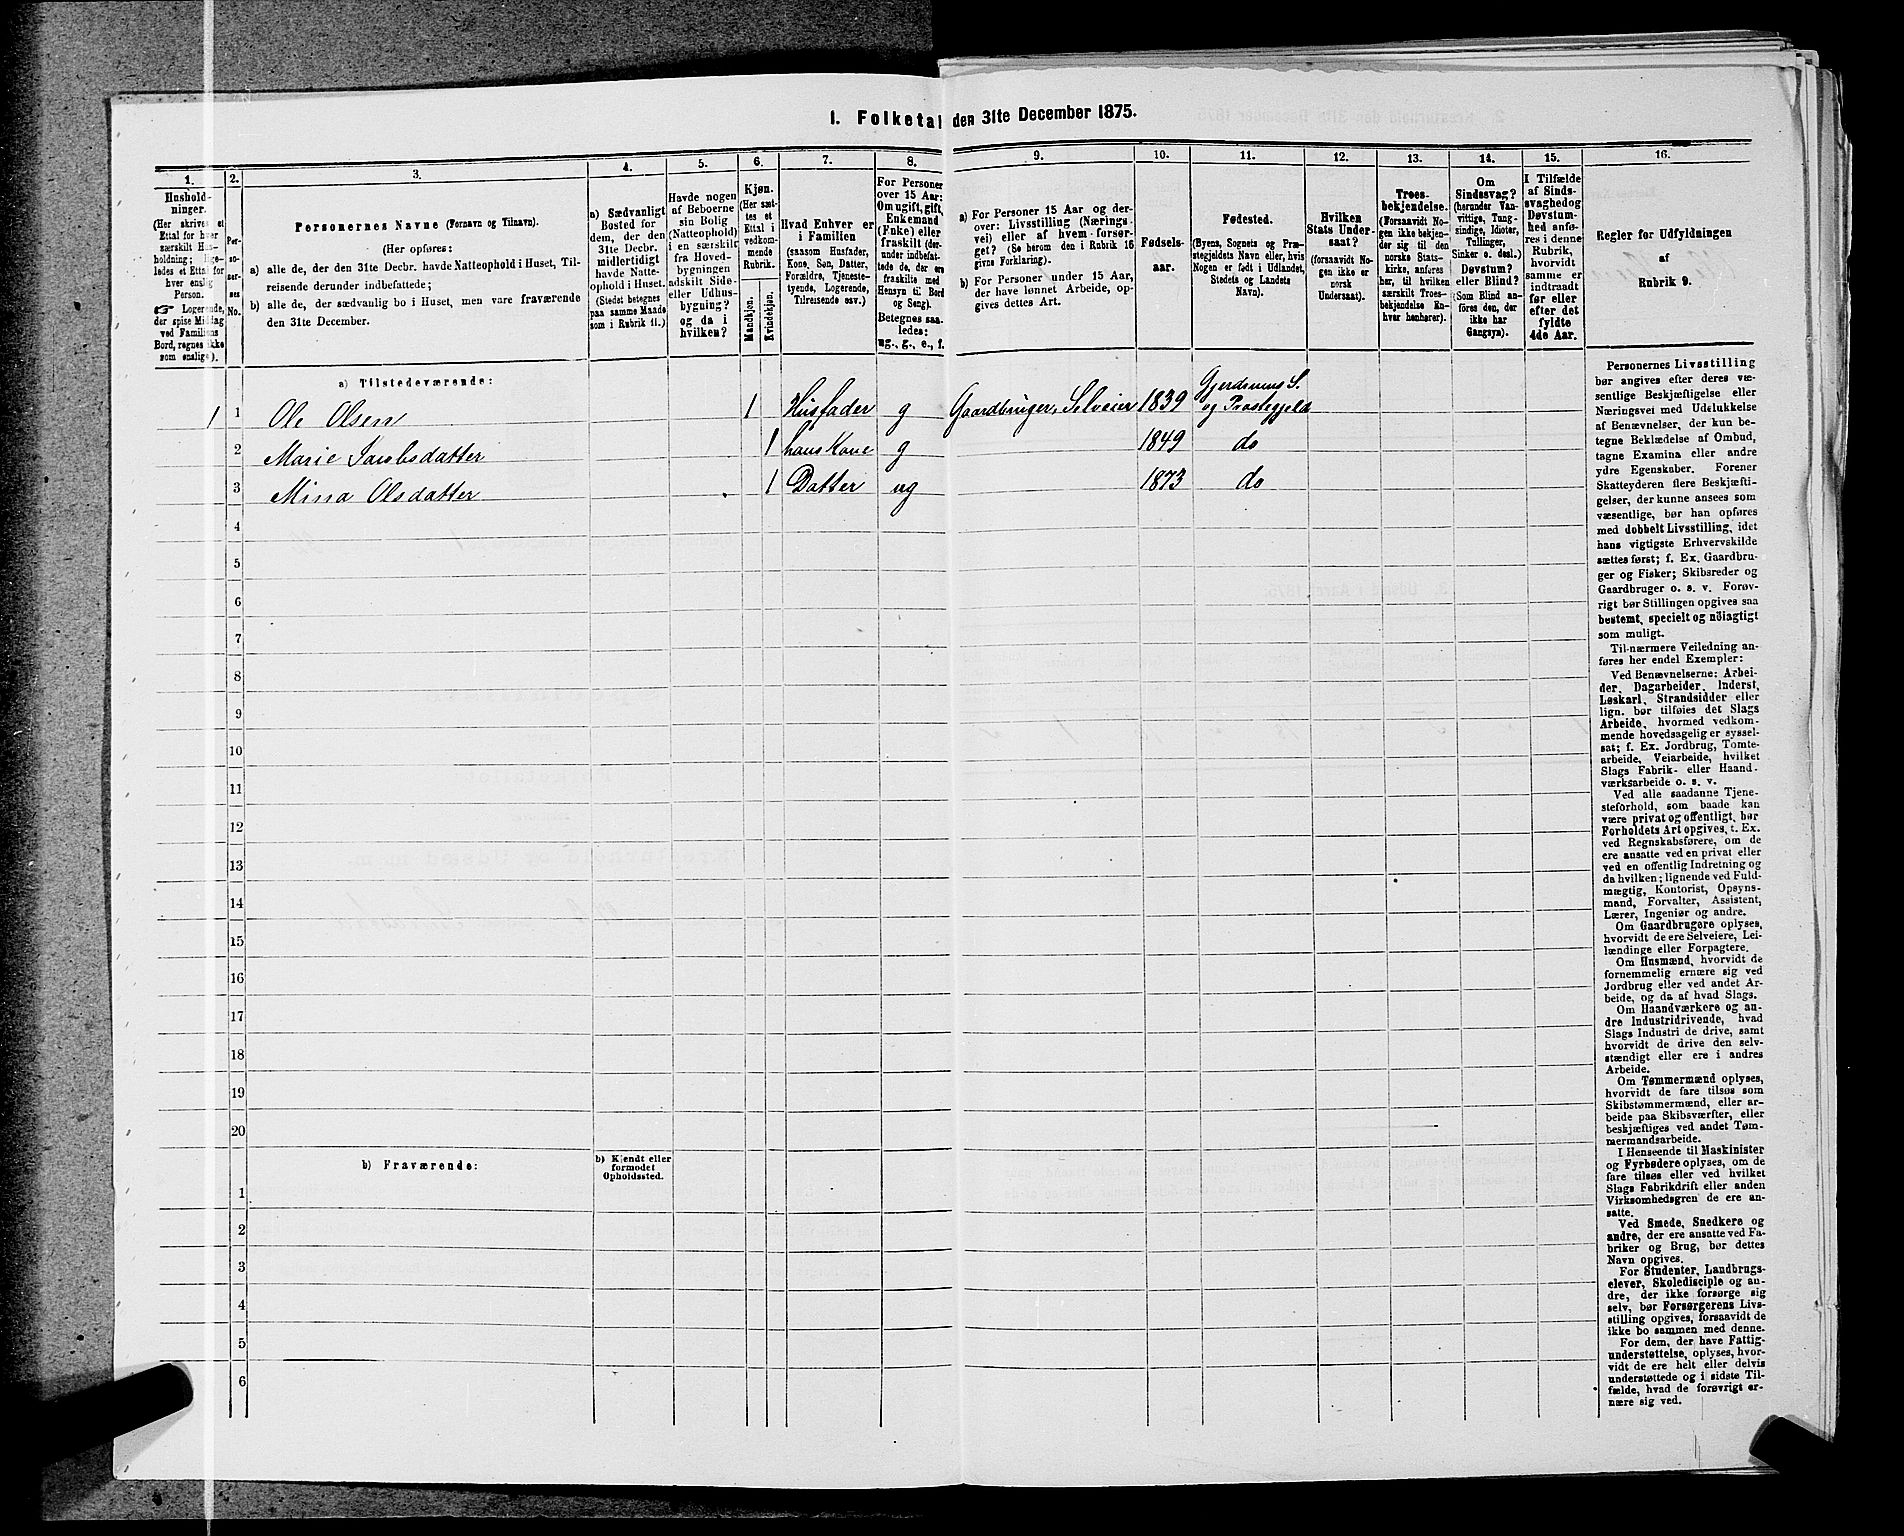 1. Folketal den 31te December 1875.
1.
2.
3.
4.
5.
6.
7.
8.
9.
10.
11.
12.
13.
14.
15.
16.
Hushold-
ninger.
(Her skrives et
Ettal for hver
særskilt Hus-
holdning; lige-
ledes et Ettal for
hver enslig
Person.
☞ Logerende,
der spise Middag
ved Familiens
Bord, regnes ikke
som enslige).
Per-
so-
ner-
nes
No.
Personernes Navne (Fornavn og Tilnavn).
(Her opføres:
a) alle de, der den 31te Decbr. havde Natteophold i Huset, Til-
reisende derunder indbefattede;
b) alle de, der sædvanlig bo i Huset, men vare fraværende
den 31te December.
a) Sædvanligt
Bosted for
dem, der den
31te Decbr.
midlertidigt
havde Natte-
ophold i Huset.
(Stedet betegnes
paa samme Maade
som i Rubrik 11.)
Havde nogen
af Beboerne
sin Bolig
(Natteophold)
i en særskilt
fra Hoved-
bygningen
adskilt Side-
eller Udhus-
bygning?
og da i
hvilken?
Kjøn.
(Her sæt-
tes et
Ettal i
vedkom-
mende
Rubrik.
Mandkjøn.
Kvindekjøn.
Hvad Enhver er
i Familien
(saasom Husfader,
Kone, Søn, Datter,
Forældre, Tjeneste-
tyende, Logerende,
Tilreisende osv.)
For Personer
over 15 Aar:
Om ugift, gift,
Enkemand
(Enke) eller
fraskilt (der-
under indbefat-
tede de, der ere
fraskilte med
Hensyn til Bord
og Seng).
Betegnes saa-
ledes:
ug., g., e., f.
a) For Personer 15 Aar og der-
over: Livsstilling (Nærings-
vei) eller af hvem forsør-
get? (Se herom den i Rubrik 16
givne Forklaring).
b) For Personer under 15 Aar,
der have lønnet Arbeide, op-
gives dettes Art.
Fødsels-
aar.
Fødested.
(Byens, Sognets og Præ-
stegjeldets Navn eller, hvis
Nogen er født i Udlandet,
Stedets og Landets
Navn).
Hvilken
Stats Under-
saat?
(forsaavidt No-
gen ikke er
norsk
Undersaat).
Troes-
bekjendelse.
(Forsaavidt No-
gen ikke bekjen-
der sig til den
norske Stats-
kirke, anføres
her, til hvilken
særskilt Troes-
bekjendelse En-
hver henhører).
Om
Sindssvag?
(herunder Van-
vittige, Tung-
sindige, Idioter,
Tullinger,
Sinker o. desl.)
Døvstum?
eller Blind?
(Som Blind an-
føres den, der
ikke har
Gangsyn).
I Tilfælde
af Sinds-
svaghed og
Døvstum-
hed anfø-
res i denne
Rubrik,
hvorvidt
samme er
indtraadt
før eller
efter det
fyldte
4de Aar.
Regler for Udfyldningen
af
Rubrik 9.
a) Tilstedeværende:
1 1 Ole Olsen 1 Husfader g Gaardbruger, Selveier 1839 Gjerdrums S. og Præstegjeld
2 Marie Jacobsdatter 1 hans Kone g 1849 do
3 Mina Olsdatter 1 Datter ug 1873 do
4
5
6
7
8
9
10
11
12
13
14
15
16
17
18
19
20
b) Fraværende:
b) Kjendt eller
formodet
Opholdssted.
1
2
3
4
5
6
Personernes Livsstilling
bør angives efter deres væ-
sentlige Beskjæftigelse eller
Næringsvei med Udelukkelse
af Benævnelser, der kun be-
tegne Beklædelse af Ombud,
tagne Examina eller andre
ydre Egenskaber. Forener
Skatteyderen flere Beskjæfti-
gelser, der kunne ansees som
væsentlige, bør han opføres
med dobbelt Livsstilling, idet
hans vigtigste Erhvervskilde
sættes først; f. Ex. Gaardbru-
ger og Fisker; Skibsreder og
Gaardbruger o. s. v. Forøv-
rigt bør Stillingen opgives saa
bestemt, specielt og nöiagtigt
som muligt.
Til nærmere Veiledning an-
føres her endel Exempler:
Ved Benævnelserne: Arbei-
der, Dagarbeider, Inderst,
Løskarl, Strandsidder eller
lign. bør tilføies det Slags
Arbeide, hvormed vedkom-
mende hovedsagelig er syssel-
sat; f. Ex. Jordbrug, Tomte-
arbeide, Veiarbeide, hvilket
Slags Fabrik- eller Haand-
værksarbeide o. s. v.
Ved alle saadanne Tjene-
steforhold, som baade kan
være privat og offentligt, bør
Forholdets Art opgives, t. Ex.
ved Regnskabsførere, om de
ere ansatte ved en privat eller
ved en offentlig Indretning og
da hvilken; lignende ved Fuld-
mægtig, Kontorist, Opsyns-
mand, Forvalter, Assistent,
Lærer, Ingeniør og andre.
Om Gaardbrugere oplyses,
hvorvidt de ere Selveiere, Lei-
lændinge eller Forpagtere.
Om Husmænd, hvorvidt de
fornemmelig ernære sig ved
Jordbrug eller ved andet Ar-
beide, og da af hvad Slags.
Om Haandværkere og an-
dre Industridrivende, hvad
Slags Industri de drive, samt
hvorvidt de drive den selv-
stændigt eller ere i andres
Arbeide.
Om Tømmermænd oplyses,
hvorvidt de fare tilsøs som
Skibstømmermænd, eller ar-
beide paa Skibsværfter, eller
beskjæftiges ved andet Tøm-
mermandsarbeide.
I Henseende til Maskinister
og Fyrbødere oplyses, om de
fare tilsøs eller ved hvilket
Slags Fabrikdrift eller anden
Virksomhedsgren de ere an-
satte.
Ved Smede, Snedkere og
andre, der ere ansatte ved Fa-
briker og Brug, bør dettes
Navn opgives.
For Studenter, Landbrugs-
elever, Skoledisciple og an-
dre, der ikke forsørge sig
selv, bør Forsørgerens Livs-
stilling opgives, forsaavidt de
ikke bo sammen med denne.
For dem, der have Fattig-
understøttelse, oplyses, hvor-
vidt de ere helt eller delvis
understøttede og i sidste Til-
fælde, hvad de forøvrigt er-
nære sig ved.